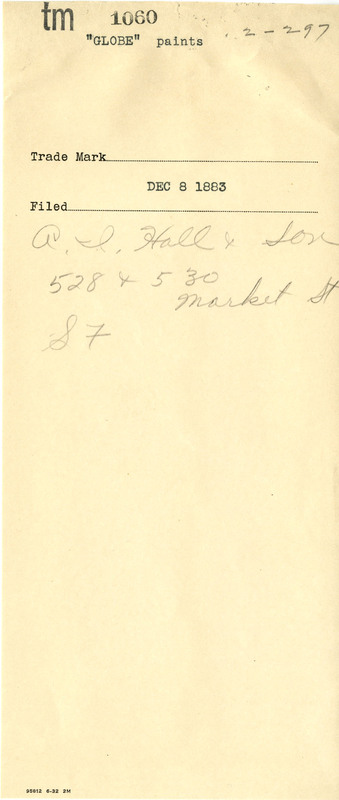 tm 1060
"GLOBE" paints 2-297
Trade Mark
DEC 8 1883
Filed
A. I. Hall & Son
528 & 530
Market St
S F
35812 6-32 2M